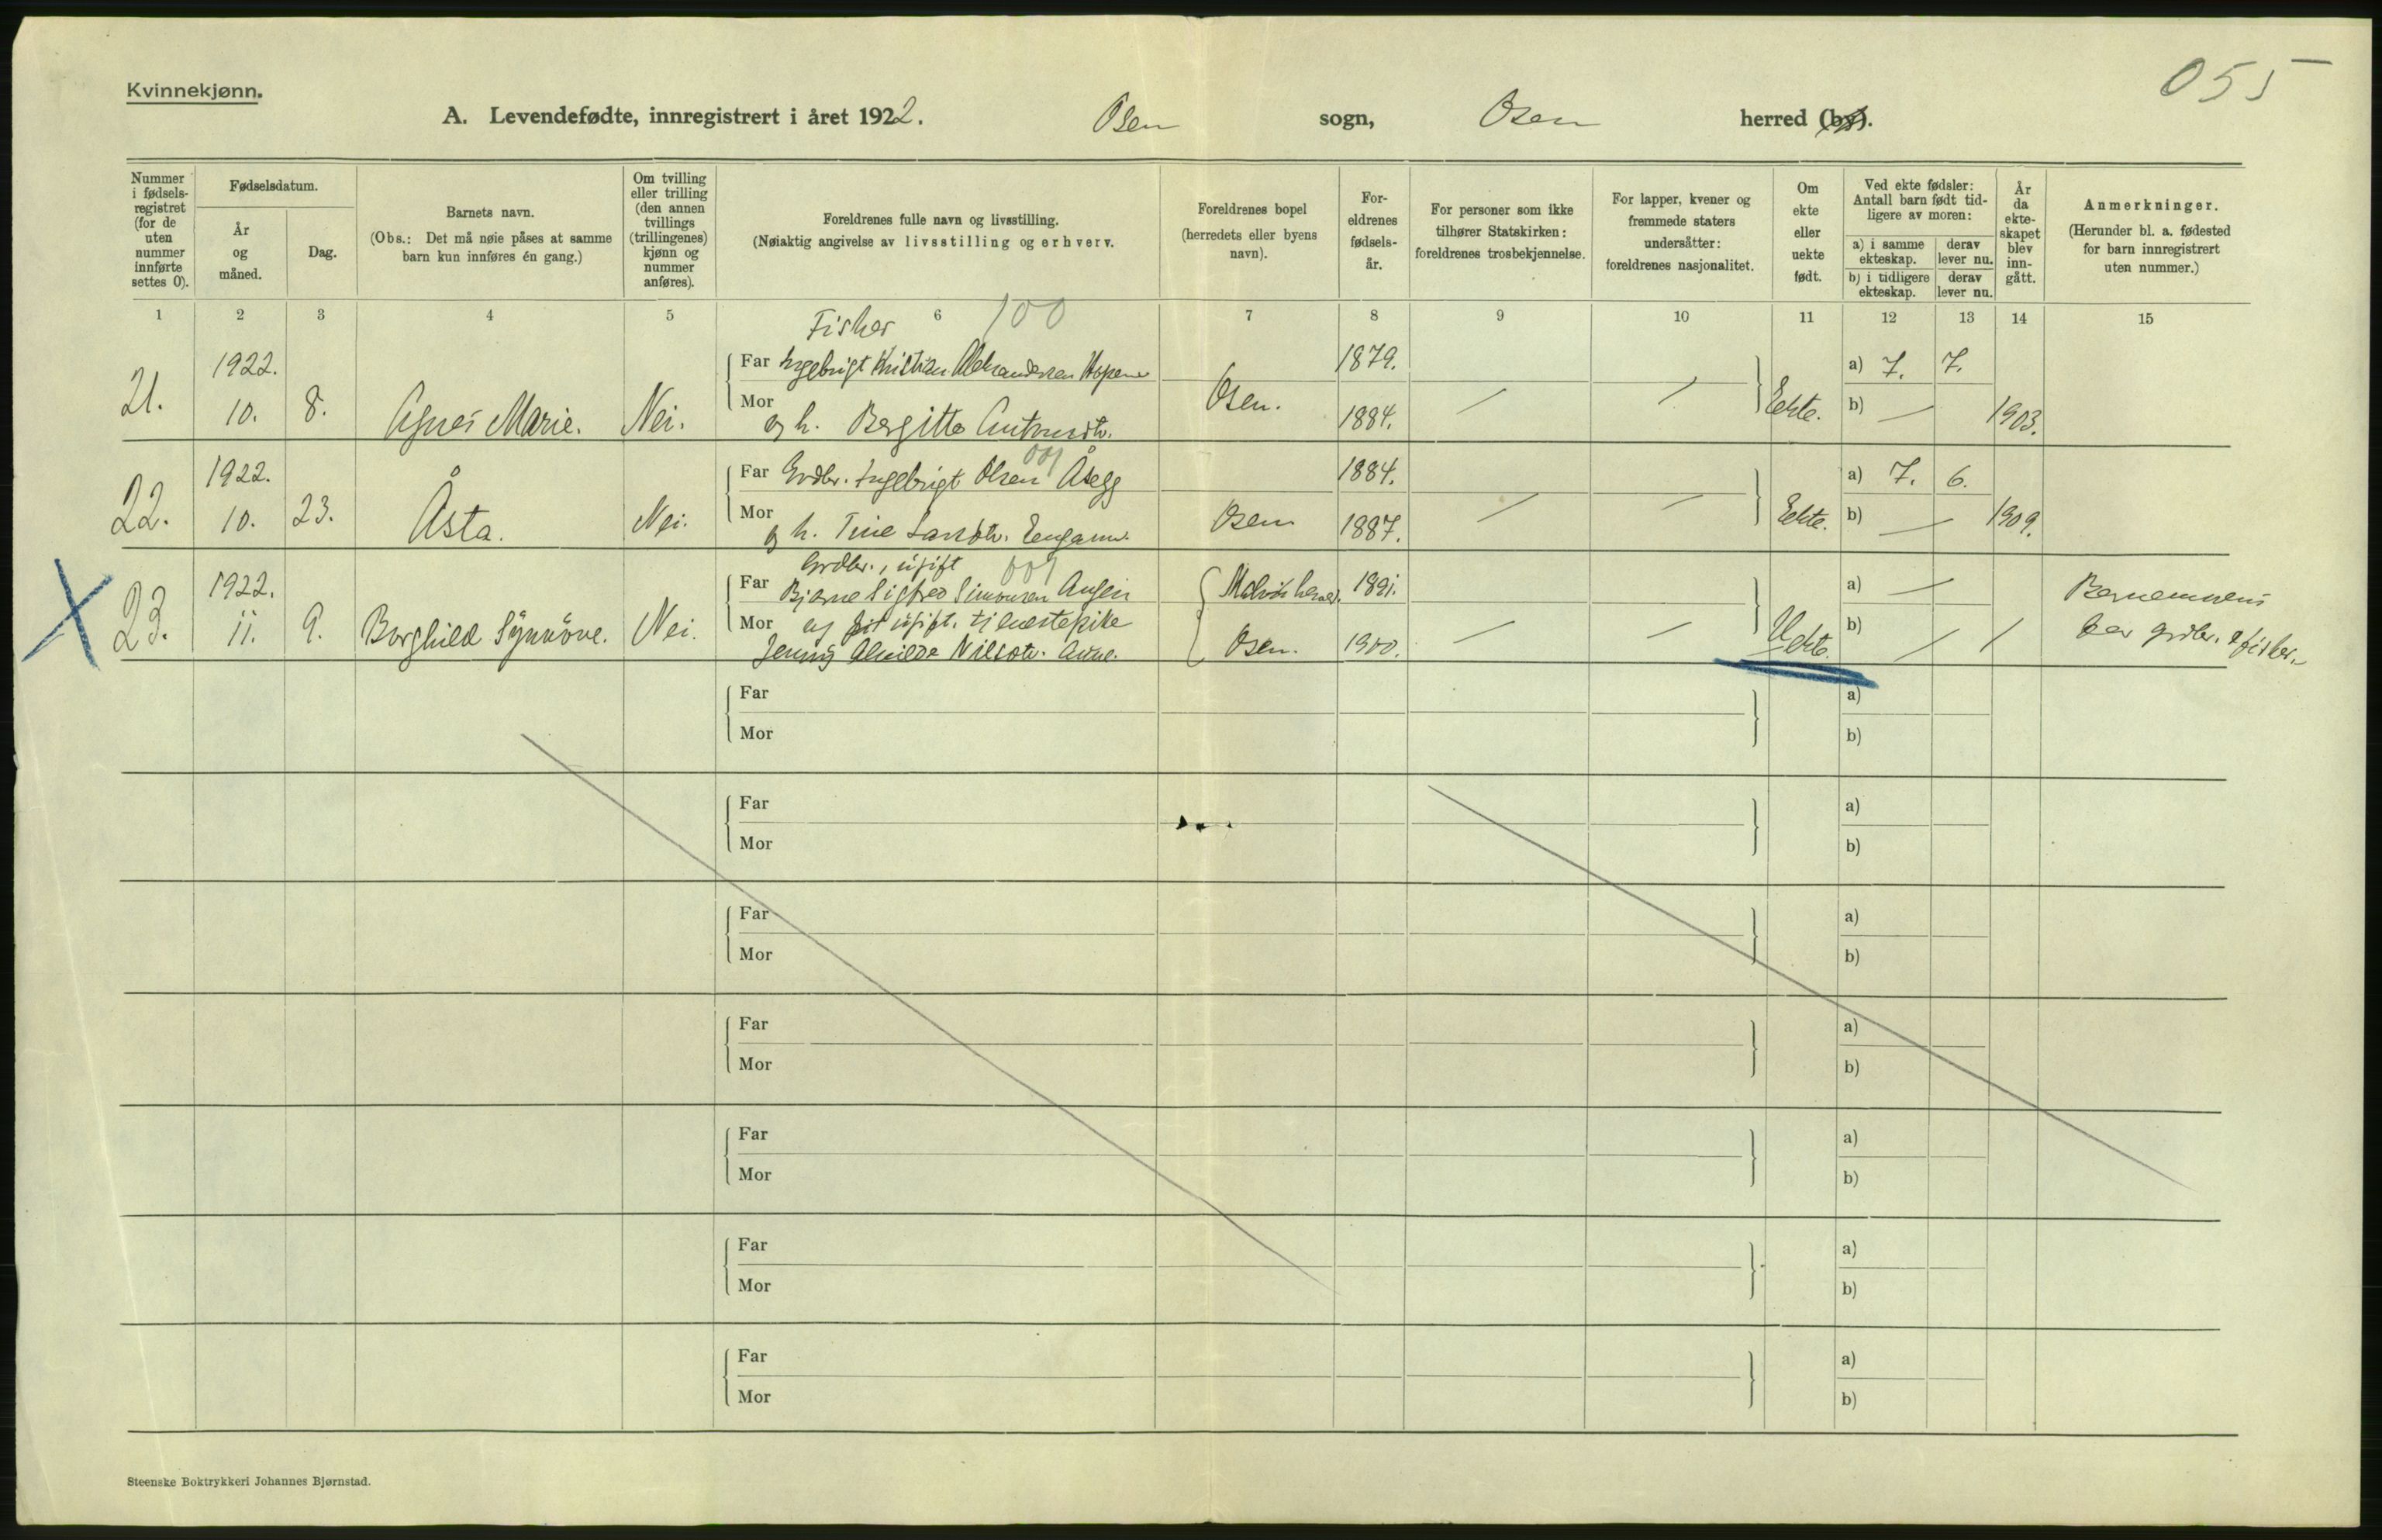 055
Kvinnekjønn.
A. Levendefødte, innregistrert i året 1922. Osen sogn, Osen herred (by).
Nummer i fødsels-registret (for de uten nummer innførte settes 0).
Fødselsdatum.
År og måned.
Dag.
Barnets navn.
(Obs.: Det må nøie påses at samme barn kun innføres én gang.)
Om tvilling eller trilling (den annen tvillings (trillingenes) kjønn og nummer anføres).
Foreldrenes fulle navn og livsstilling.
(Nøiaktig angivelse av livsstilling og erhverv.
Foreldrenes bopel (herredets eller byens navn).
For-eldrenes fødsels-år.
For personer som ikke tilhører Statskirken: foreldrenes trosbekjennelse.
For lapper, kvener og fremmede staters undersåtter: foreldrenes nasjonalitet.
Om ekte eller uekte født.
Ved ekte fødsler: Antall barn født tid-ligere av moren:
a) i samme ekteskap.
derav lever nu.
b) i tidligere ekteskap.
derav lever nu.
År da ekte-skapet blev inn-gått.
Anmerkninger.
(Herunder bl. a. fødested for barn innregistrert uten nummer.)
1 2 3 4 5 6 7 8 9 10 11 12 13 14 15
Fisker 100
1922. Far Ingebrigt Kristian Aleksandersen Hopen 1879. a) 7. 7.
21. 10. 8. Agnes Marie. Nei. Mor og h. Bergitte Osen. 1884. / / Ekte. b) — 1903.
001
1922. Far Grdbr. Ingebrigt Olsen Åsegg 1884. a) 7. 6.
22. 10. 23. Åsta. Nei. Mor og h. Tine Osen 1887. / / Ekte. b) — 1909.
Grdbr., ugift 001
X 1922. Far Bjarne Sigfred Simonsen Malvik herred. 1891. a) —
23. 11. 9. Borghild Synnöve. Nei. Mor og ugift. tjenestepike Jenny Nilsdtr. Osen. 1900. / / Uekte. b) / / Barnemorens far grdbr. & fisker.
Far a)
Mor b)
Far a)
Mor b)
Far a)
Mor b)
Far a)
Mor b)
Far a)
Mor b)
Far a)
Mor b)
Far a)
Mor b)
Steenske Boktrykkeri Johannes Bjørnstad.